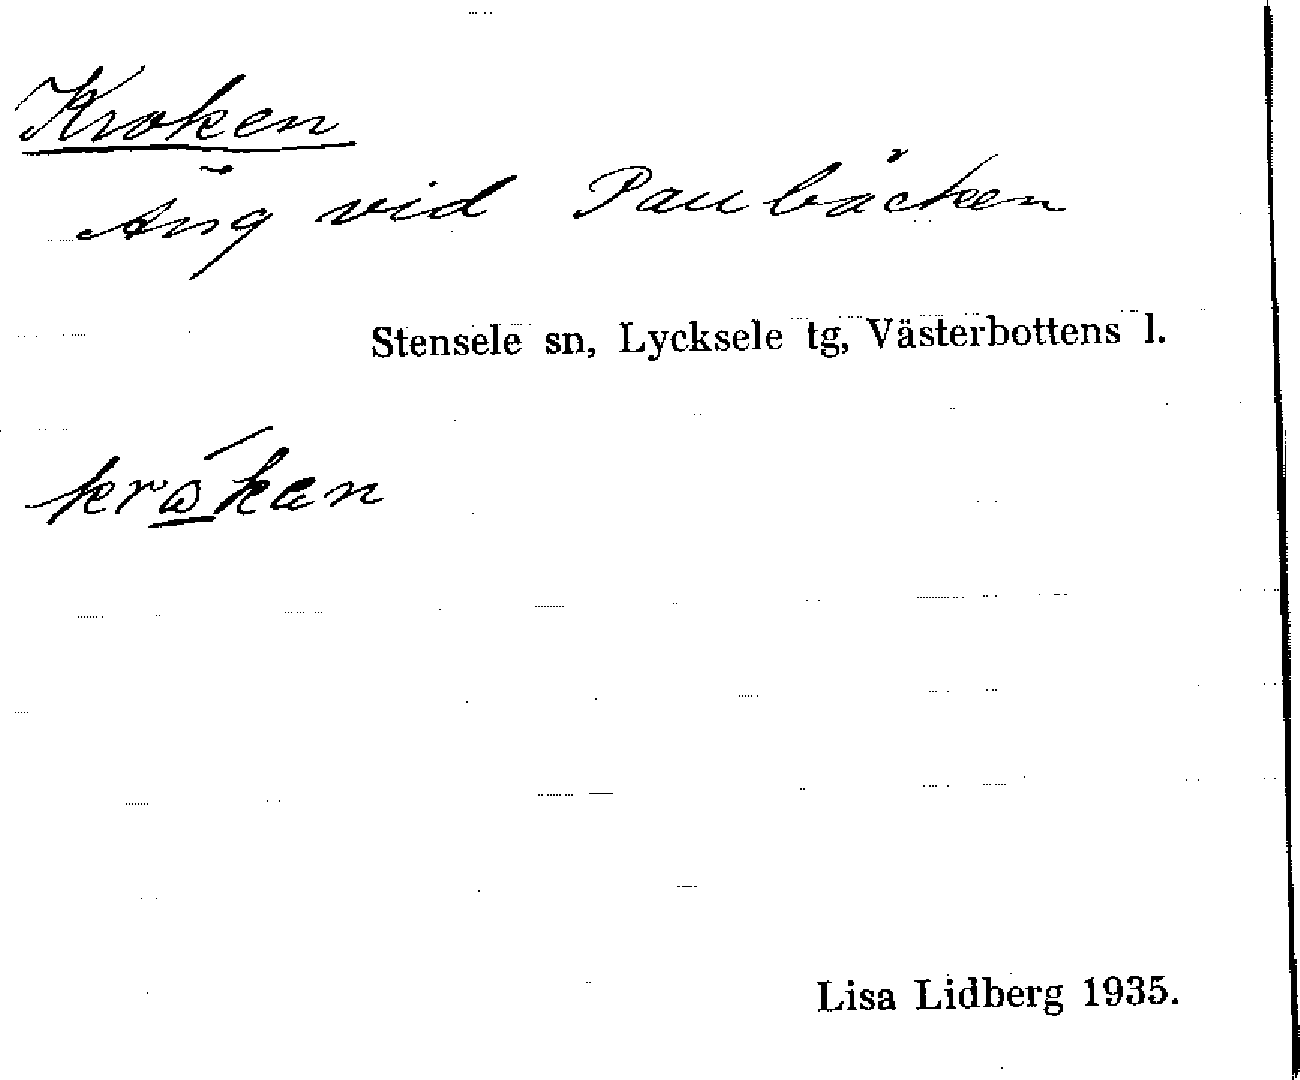 Kroken
Äng vid Paubäcken
Stensele sn, Lycksele tg, Västerbottens l.
króken
Lisa Lidberg 1935.